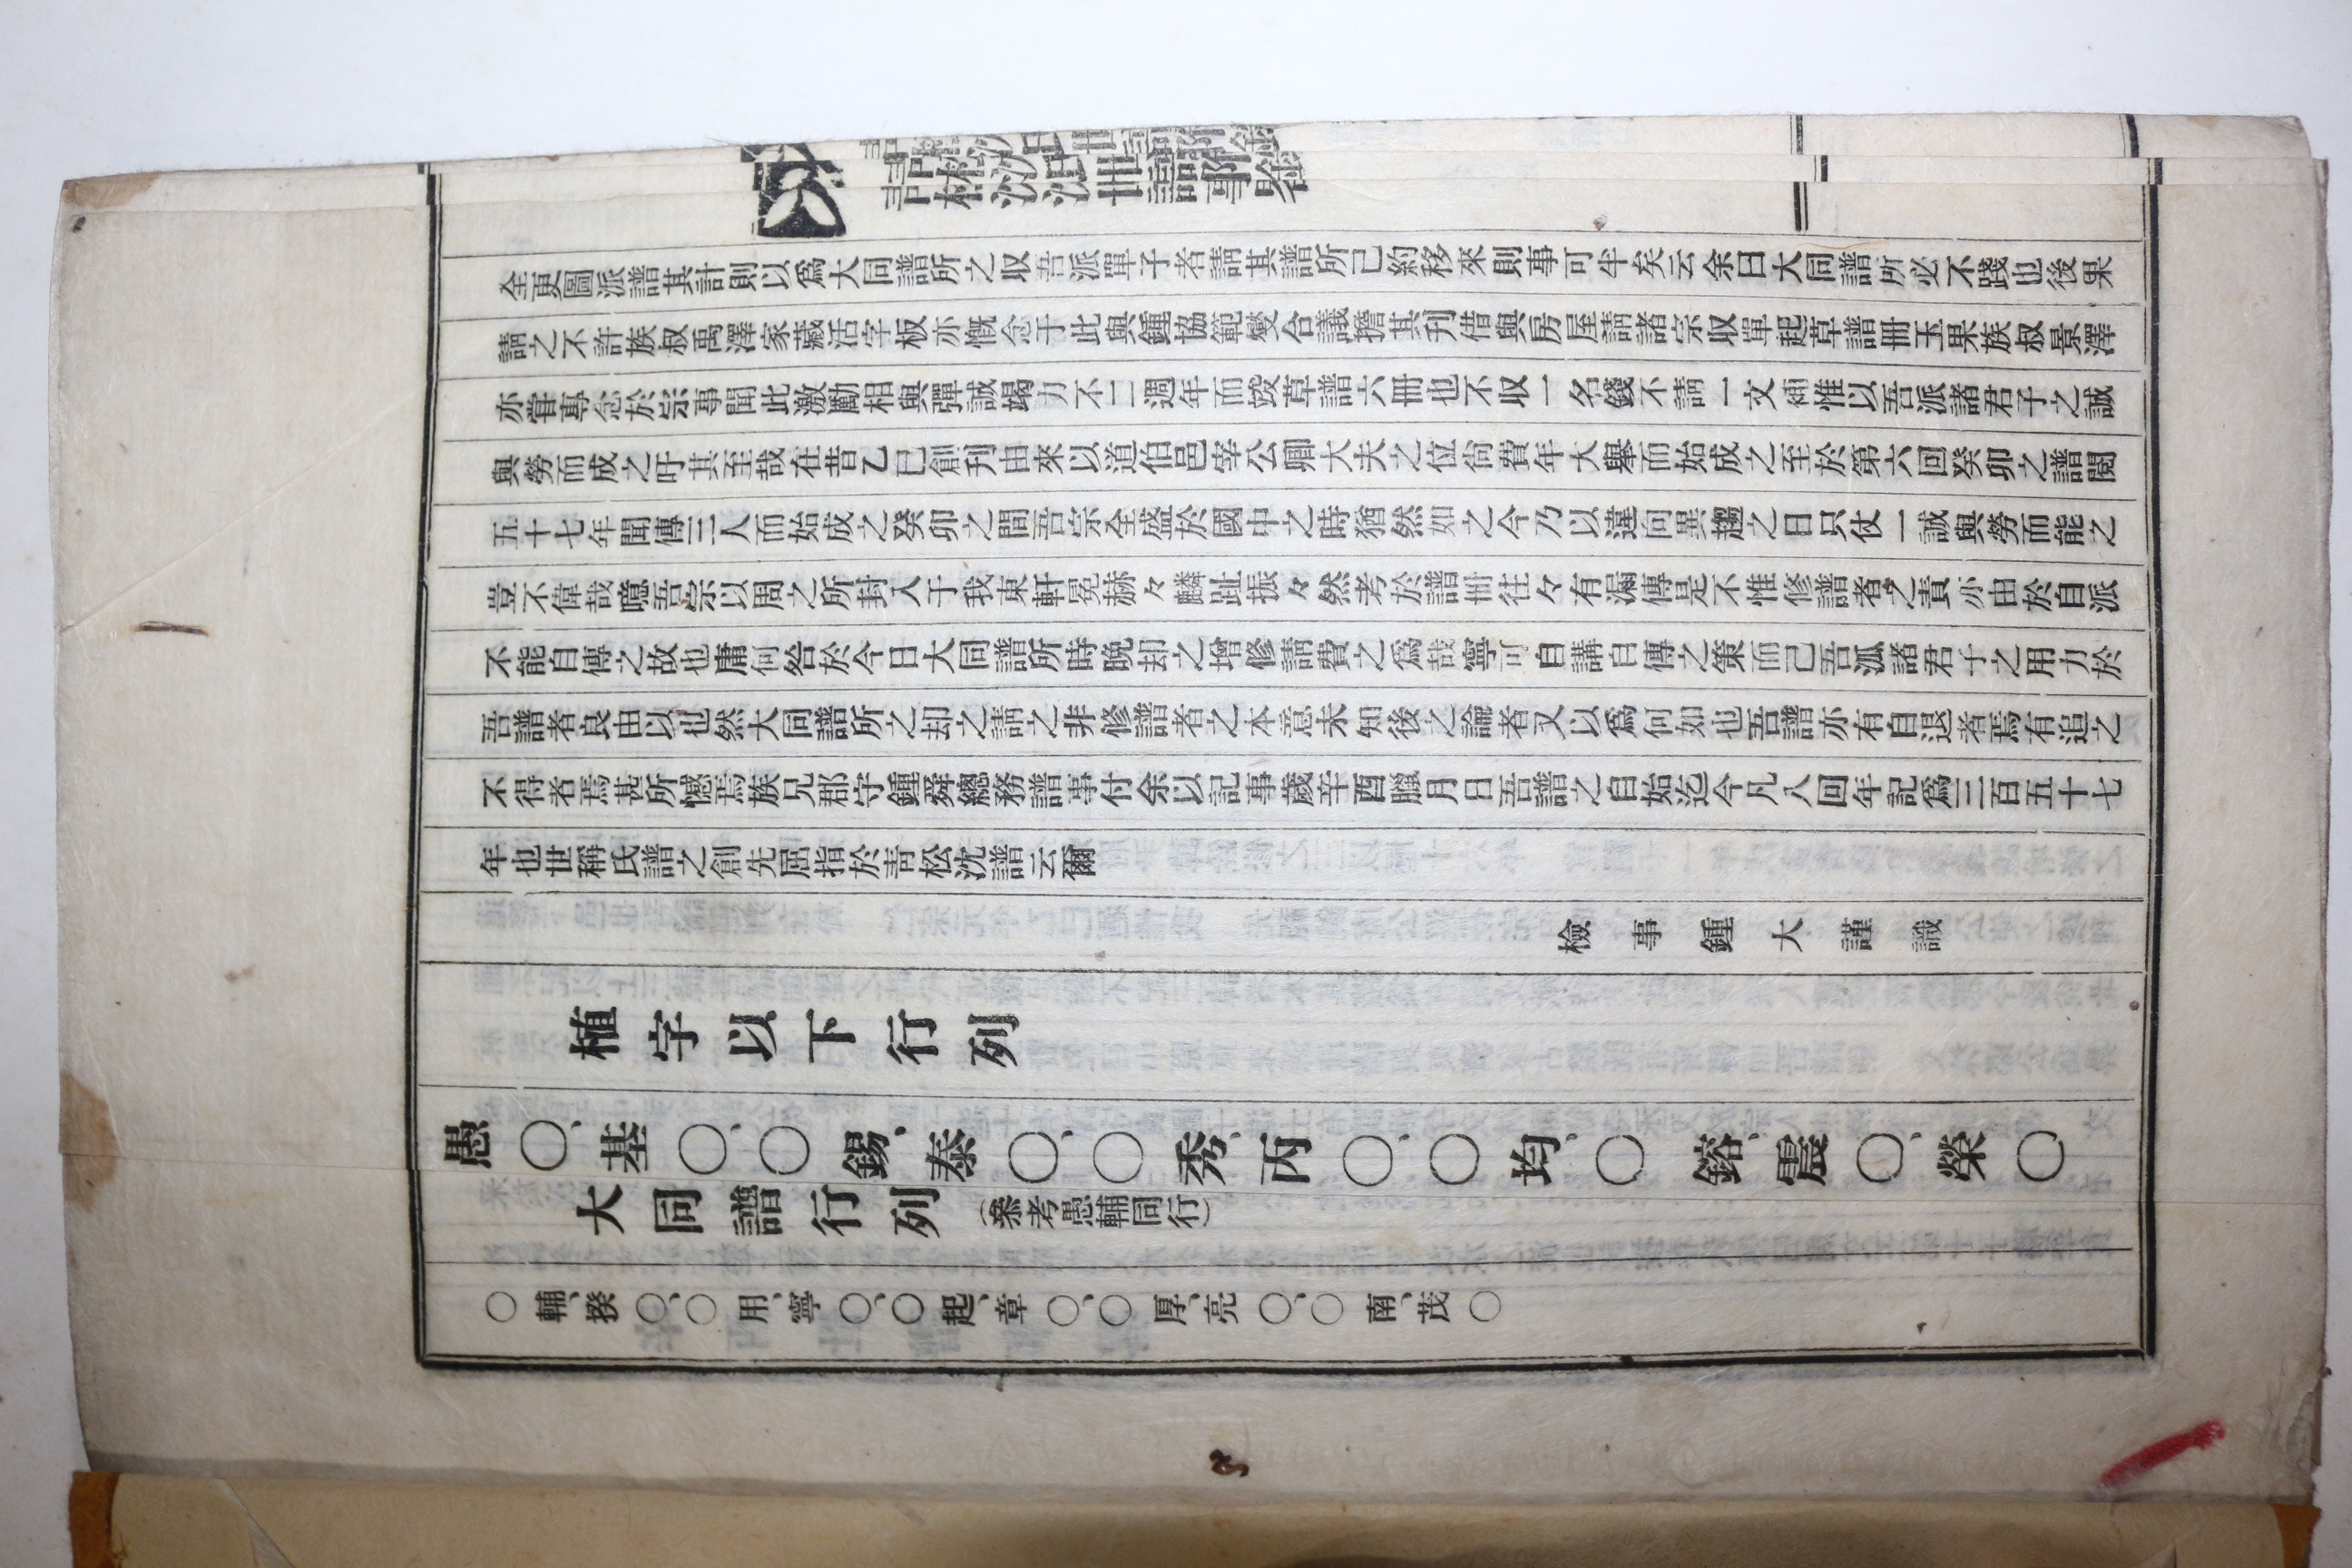 全更圖派譜其計則以爲大同譜所之収吾派單子者請其譜所己約移來則事可半矣云余曰大同譜所必不踐也後果
請之不許族叔禹澤家藏活字板亦慨念于此與鍾協範燮合議擔其刊借與房屋請諸宗収單起草譜冊玉果族叔景澤
亦嘗專念於宗事聞此激勵相與彈誠竭力不二週年而竣草譜六冊也不取一名錢不請一文補惟以吾派諸君子之誠
與勞而成之吁其至哉在昔乙巳創刋由來以道伯邑宰公卿大夫之位尙費年大擧而始成之至於第六回癸卯之譜閱
五十七年聞傳三人而始成之癸卯之間吾宗全盛於國中之時猶然如之今乃以違向異趨之日只仗一誠與勞而能之
豈不偉哉噫吾宗以周之所封入于我東軒冕赫々麟趾振々然考於譜冊往々有漏傳是不惟修譜者之責亦由於自派
不能自傳之故也庸何咎於今日大同譜所時晩却之增修請費之爲哉寧可自講自傳之策而己吾派諸君子之用力於
吾譜者良由以也然大同譜所之却之請之非修譜者之本意未知後之論者又以爲何如也吾譜亦有自退者焉有追之
不得者焉甚所憾焉族兄郡守鍾舜總務譜事付余以記事歲辛酉臘月日吾譜之自始迄今凡八回年記爲三百五十七
年也世稱氏譜之創先屈指於靑松沈譜云爾
檢事鍾大謹識
植字以下行列
愚〇、基〇、〇錫、泰〇、〇秀、丙〇、〇均、〇鎔、震〇、榮〇
大同譜行列（叅考愚輔同行）
〇輔、揆〇、〇用、寧〇、〇起、章〇、〇厚、亮〇、〇南、茂〇